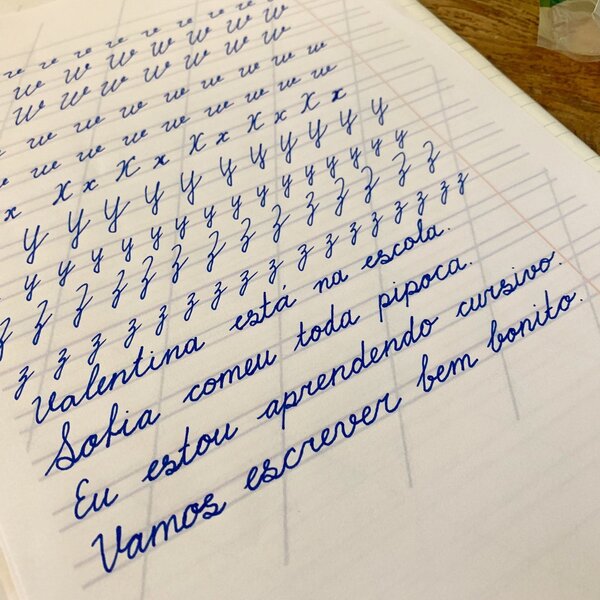 w w w w w w w w w w
W W W W W W W
W W W W W W W
w w w w w w w w w
w w w w w w w w w
x X x X x X x X x X x
y y y y y y y y y
y y y y y y y y y y y y y
z z z z z z z z z z z
z z z z z z z z z z z z z z
Valentina está na escola.
Sofia comeu toda pipoca.
Eu estou aprendendo cursivo.
Vamos escrever bem bonito.